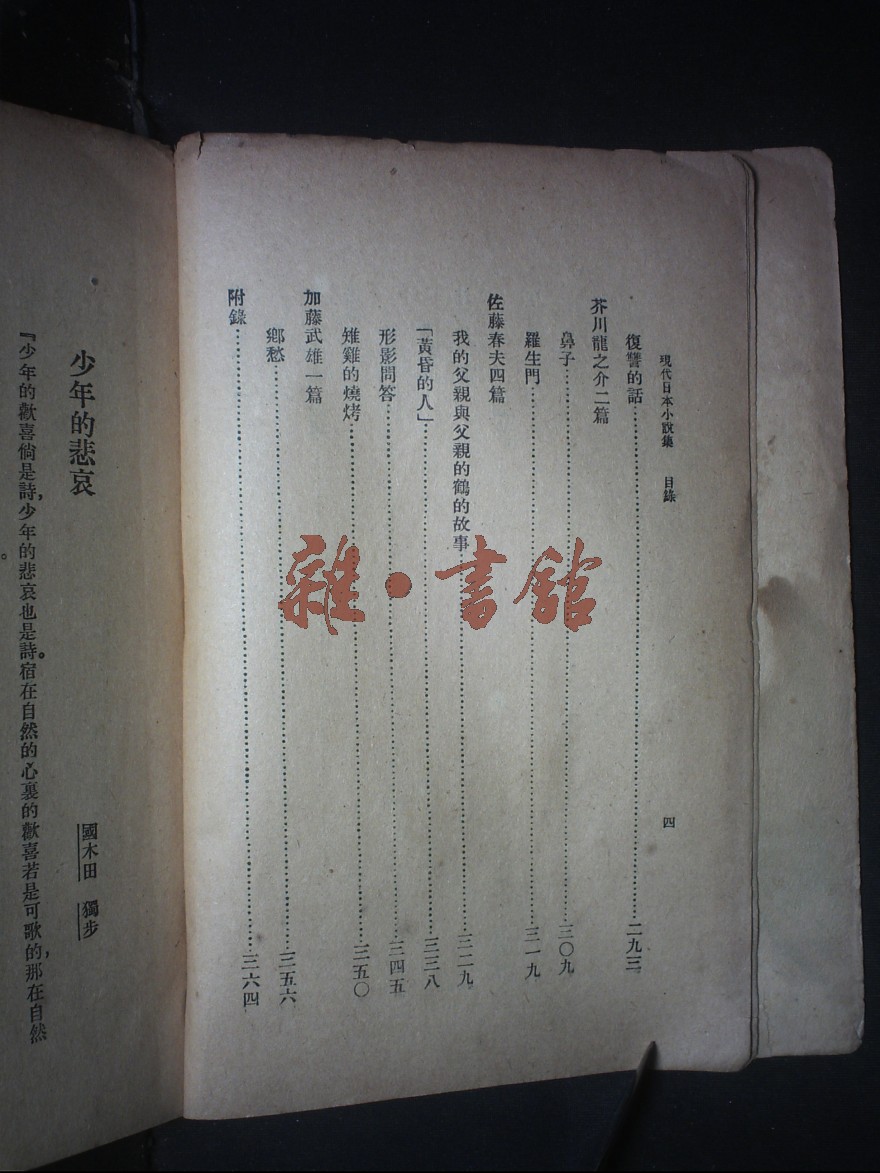 現代日本小說集 目錄 四
復讐的話……二九三
芥川龍之介二篇
鼻子……三〇九
羅生門……三一九
佐藤春夫四篇
我的父親與父親的鶴的故事……三二九
「黃昏的人」……三三八
形影問答……三四五
雉雞的燒烤……三五〇
加藤武雄一篇
鄉愁……三五六
附錄……三六四
少年的悲哀
國木田 獨步
『少年的歡喜倘是詩，少年的悲哀也是詩。宿在自然的心裏的歡喜若是可歌的，那在自然
雜·書館